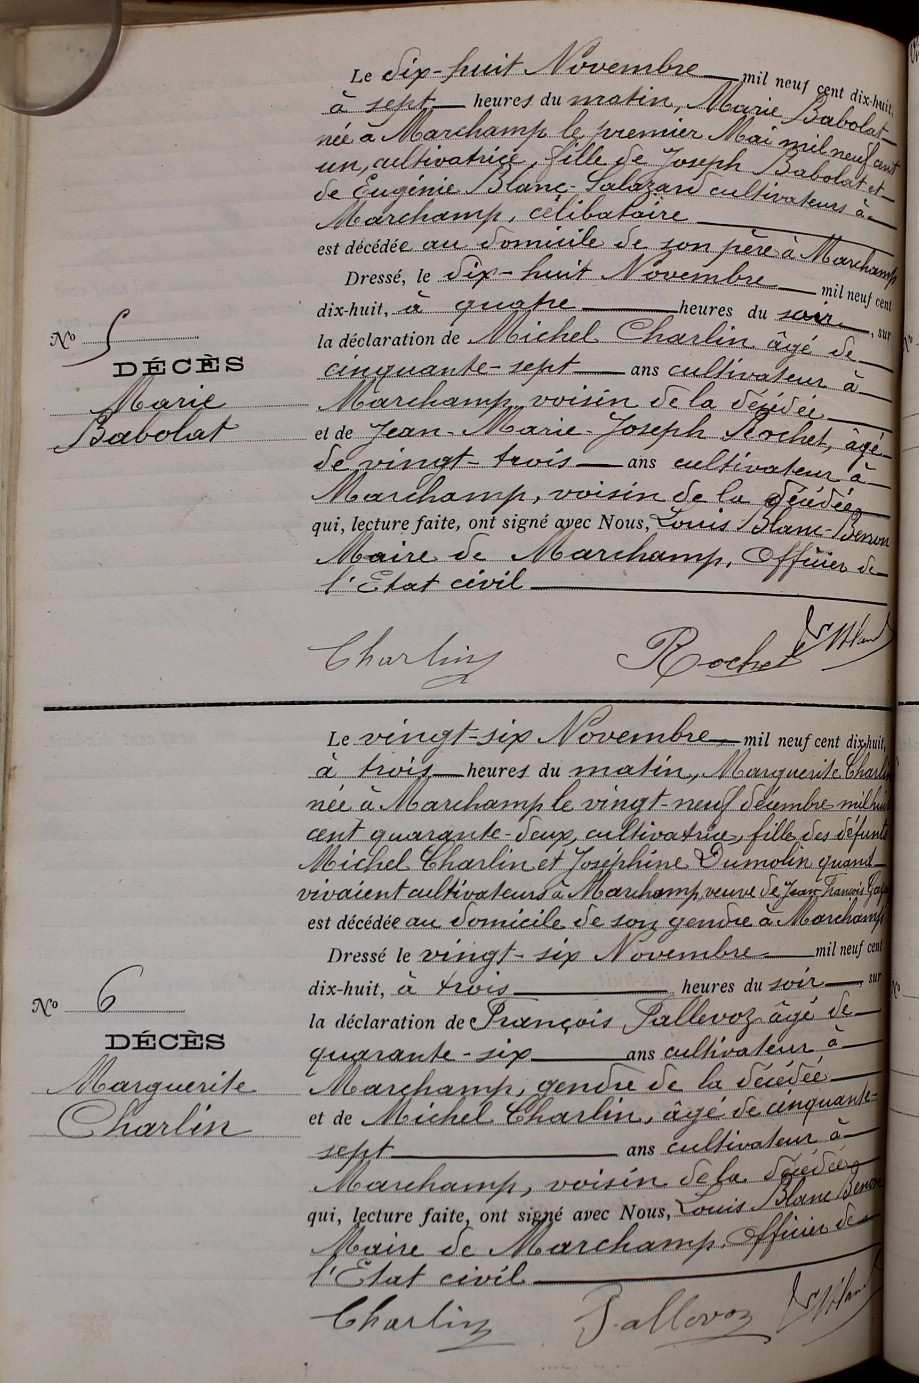 Le dix-huit Novembre mil neuf cent dix-huit,
à sept heures du matin, Marie Babolat
née à Marchamp le premier Mai mil neuf cent
un, cultivatrice, fille de Joseph Babolat et
de Eugénie Blanc-Salazard cultivateurs à
Marchamp, célibataire
est décédée au domicile de son père à Marchamp
Dressé, le dix-huit Novembre mil neuf cent
dix-huit, à quatre heures du soir, sur
la déclaration de Michel Charlin âgé de
cinquante-sept ans cultivateur à
Marchamp, voisin de la décédée
et de Jean-Marie-Joseph Rochet, âgé
de vingt-trois ans cultivateur à
Marchamp, voisin de la décédée
qui, lecture faite, ont signé avec Nous, Louis Blanc-Benon
Maire de Marchamp, Officier de
l'Etat civil
Nº 5
DÉCÈS
Marie
Babolat
Charlin Rochet
Le vingt-six Novembre mil neuf cent dix-huit,
à trois heures du matin, Marguerite Charlin
née à Marchamp le vingt-neuf décembre mil huit
cent quarante-deux, cultivatrice, fille des défunts
Michel Charlin et Joséphine Dumolin quand
vivaient cultivateurs à Marchamp, veuve de Jean-François
est décédée au domicile de son gendre à Marchamp
Dressé le vingt-six Novembre mil neuf cent
dix-huit, à trois heures du soir, sur
la déclaration de François Pallevoz âgé de
quarante-six ans cultivateur à
Marchamp, gendre de la décédée
et de Michel Charlin, âgé de cinquante-
sept ans cultivateur à
Marchamp, voisin de la décédée
qui, lecture faite, ont signé avec Nous, Louis Blanc Benon
Maire de Marchamp, Officier de
l'Etat civil
Nº 6
DÉCÈS
Marguerite
Charlin
Charlin Pallevoz